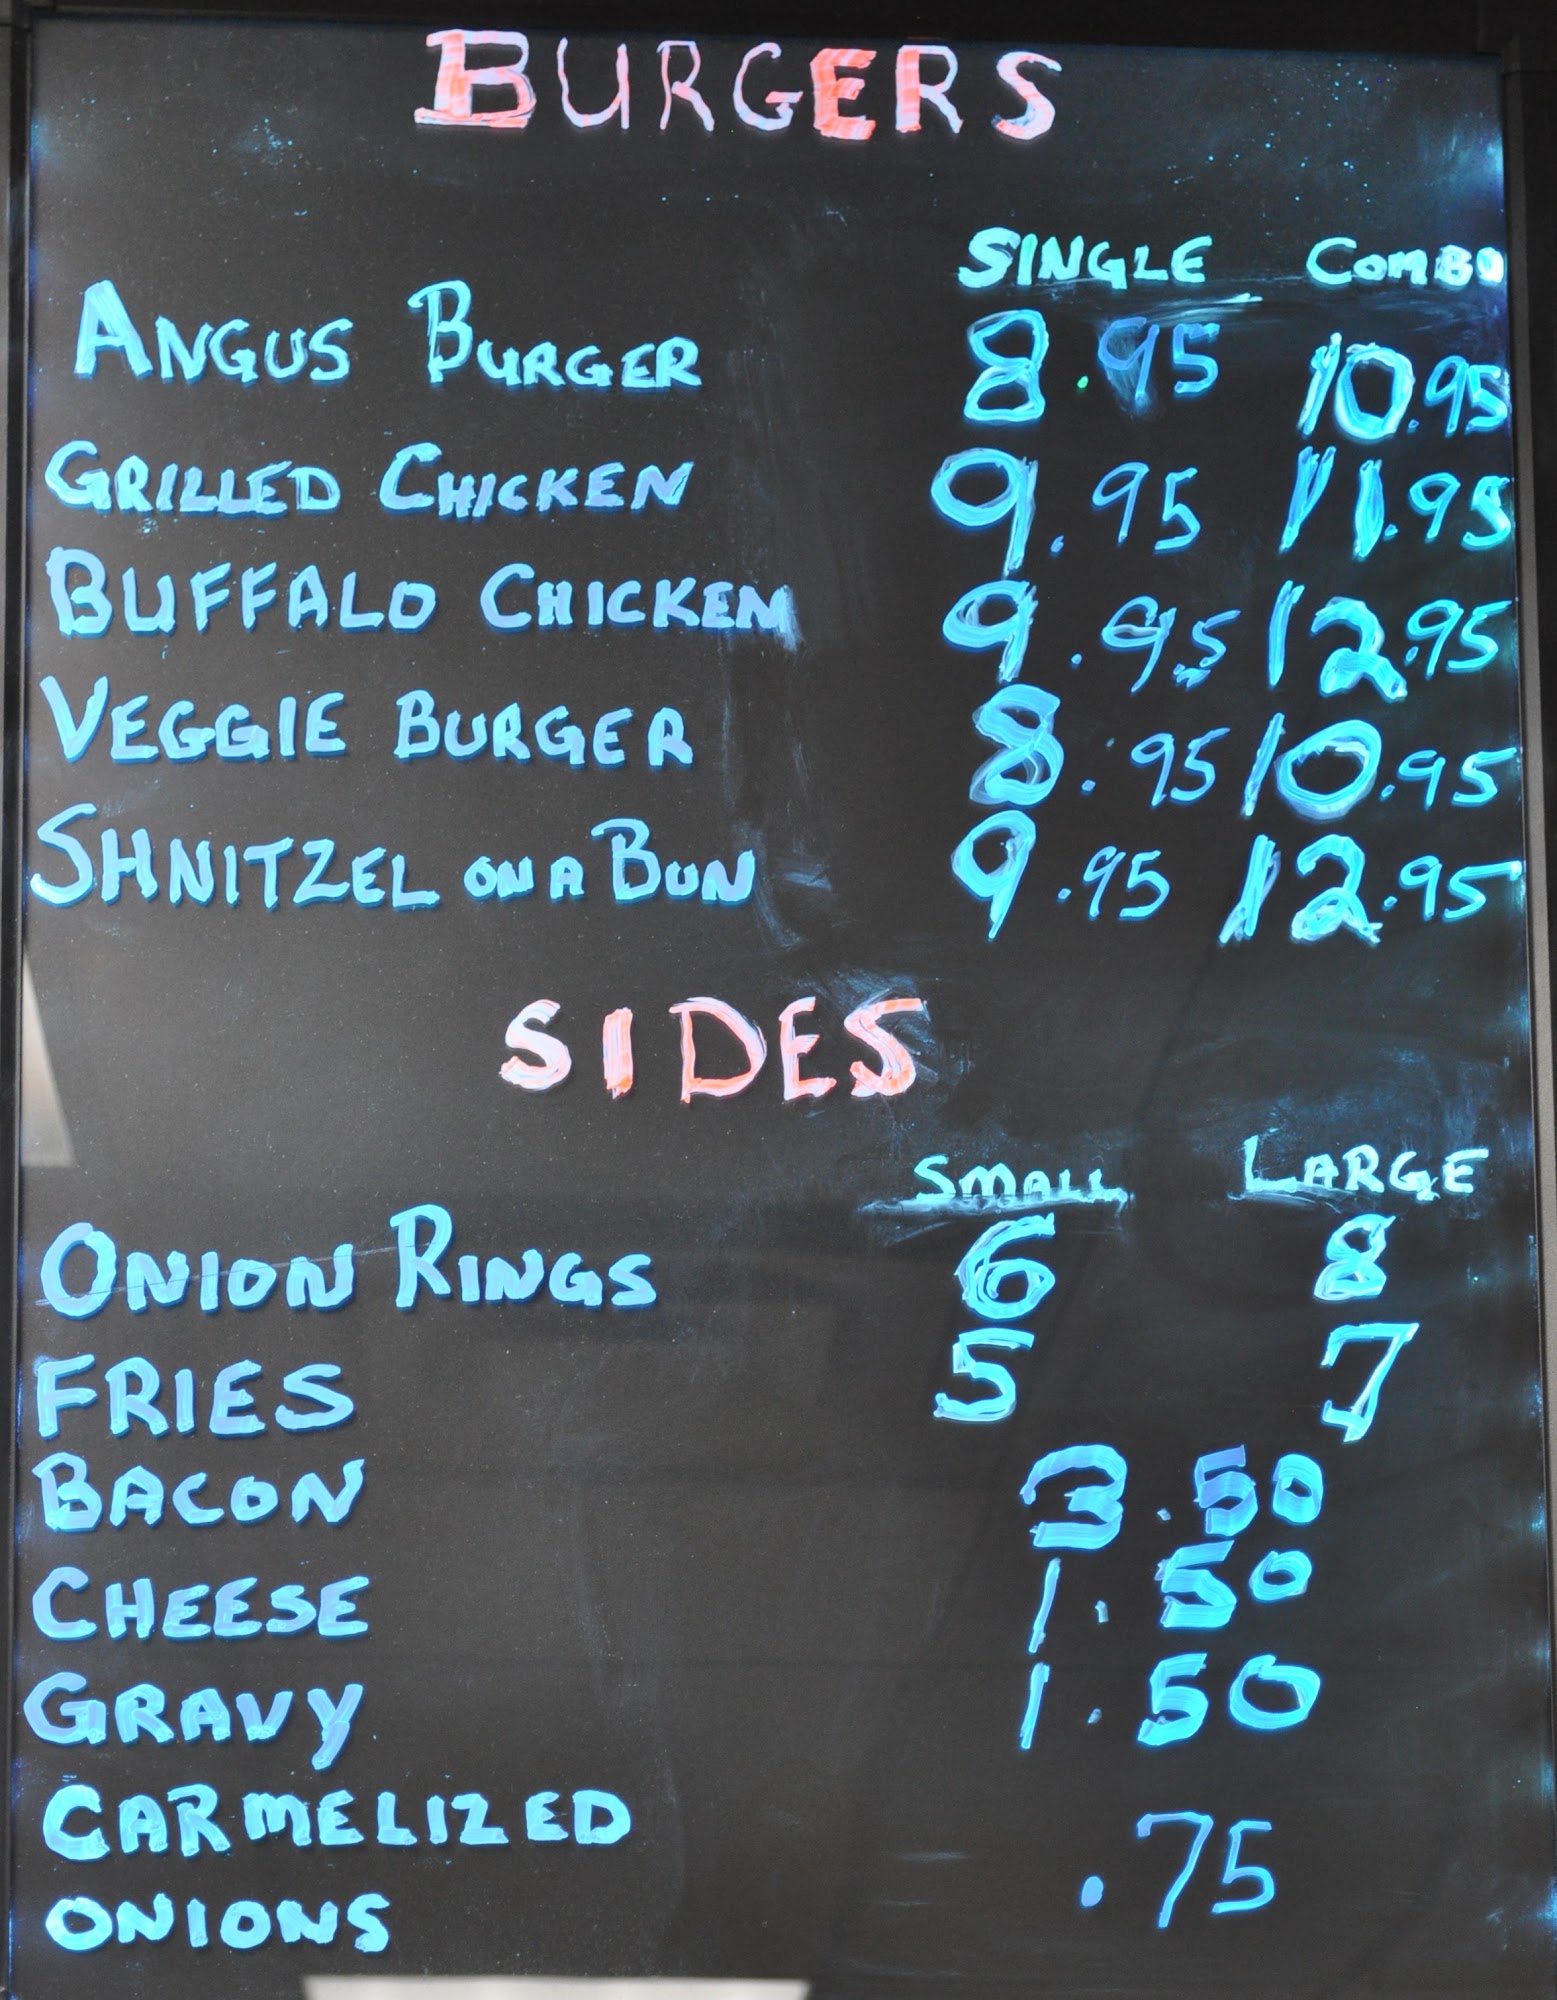 BURGERS
SINGLE COMBO
ANGUS BURGER 8.95 10.95
GRILLED CHICKEN 9.95 11.95
BUFFALO CHICKEN 9.95 12.95
VEGGIE BURGER 8.95 10.95
SHNITZEL ON A BUN 9.95 12.95
SIDES
SMALL LARGE
ONION RINGS 6 8
FRIES 5 7
BACON 3.50
CHEESE 1.50
GRAVY 1.50
CARMELIZED
ONIONS .75